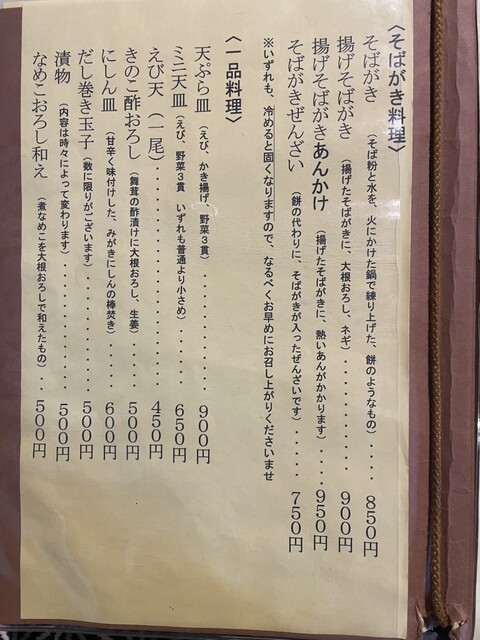 〈そばがき料理〉
そばがき（そば粉と水を、火にかけた鍋で練り上げた、餅のようなもの）‥‥850円
揚げそばがき（揚げたそばがきに、大根おろし、ネギ）‥‥‥‥‥‥900円
揚げそばがきあんかけ（揚げたそばがきに、熱いあんがかかります）‥‥950円
そばがきぜんざい（餅の代わりに、そばがきが入ったぜんざいです）‥‥‥750円
※いずれも、冷めると固くなりますので、なるべくお早めにお召し上がりくださいませ
〈一品料理〉
天ぷら皿（えび、かき揚げ、野菜３貫）‥‥‥‥‥‥900円
ミニ天皿（えび、野菜３貫　いずれも普通より小さめ）‥‥‥650円
えび天（一尾）‥‥‥‥‥‥‥‥‥‥450円
きのこ酢おろし（舞茸の酢漬けに大根おろし、生姜）‥‥‥500円
にしん皿（甘辛く味付けした、みがきにしんの棒焚き）‥‥‥600円
だし巻き玉子（数に限りがございます）‥‥‥‥‥‥500円
漬物（内容は時々によって変わります）‥‥‥‥‥‥500円
なめこおろし和え（煮なめこを大根おろしで和えたもの）‥‥500円